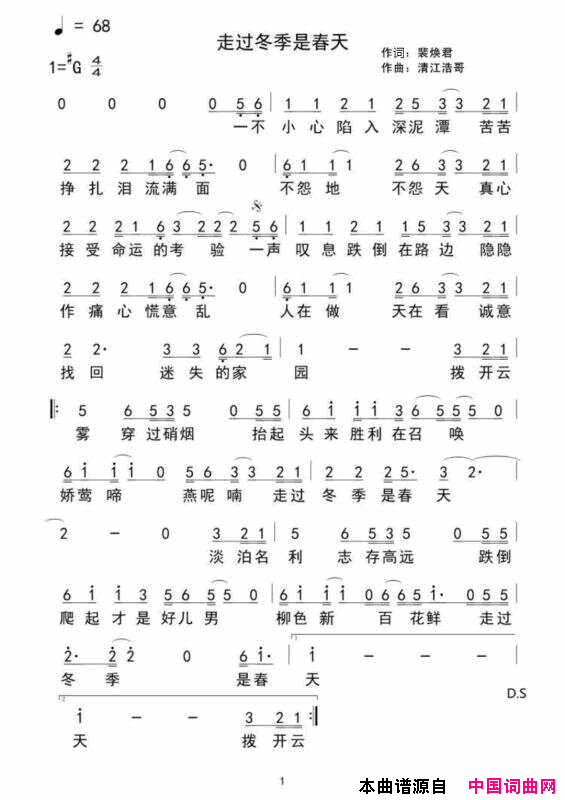 ♩ = 68
走过冬季是春天
作词：裴焕君
1=♯G 4/4
作曲：清江浩哥
0 0 0 0 5 6 | 1 1 2 1 2 5 3 3 2 1 |
一不 小心陷入深泥潭 苦苦
2 2 2 1 6 6 5· 0 | 6 1 1 1 2 6 3 3 2 1 |
挣扎泪流满面 不怨地 不怨天 真心
2 2 2 1 6 3 2 2 2 5 6 | 1 1 2 1 2 1 5 3 3 2 1 |
接受命运的考验 一声 叹息跌倒在路边 隐隐
2 2 2 1 6 6 5· 0 | 6 1 1 1 2 6 3 3 2 1 |
作痛心慌意乱 人在做 天在看 诚意
2 2· 3 3 6 2 1 | 1 – – 3 2 1 |
找回 迷失的家 园 拨开云
5 6 5 3 5 0 5 5 | 6 i i i 3 6 5 5 5 0 |
雾 穿过硝烟 抬起 头来胜利在召唤
6 i i i 0 5 6 3 3 0 3 3 | 2 2 2 2 5· 3 2· |
娇莺啼 燕呢喃 走过 冬季是春天
2 – 0 3 2 1 | 5 6 5 3 5 0 5 5 |
淡泊名 利 志存高远 跌倒
6 i i 3 5 6 5 5 0 | 6 i i i 0 6 6 5 5 0 5 5 |
爬起才是好儿男 柳色新 百花鲜 走过
1.
2· 2 2 0 6 i· | i – – – |
冬季 是春 天
D.S
2.
i – – 3 2 1 :|
天 拨开云
1
本曲谱源自 中国词曲网